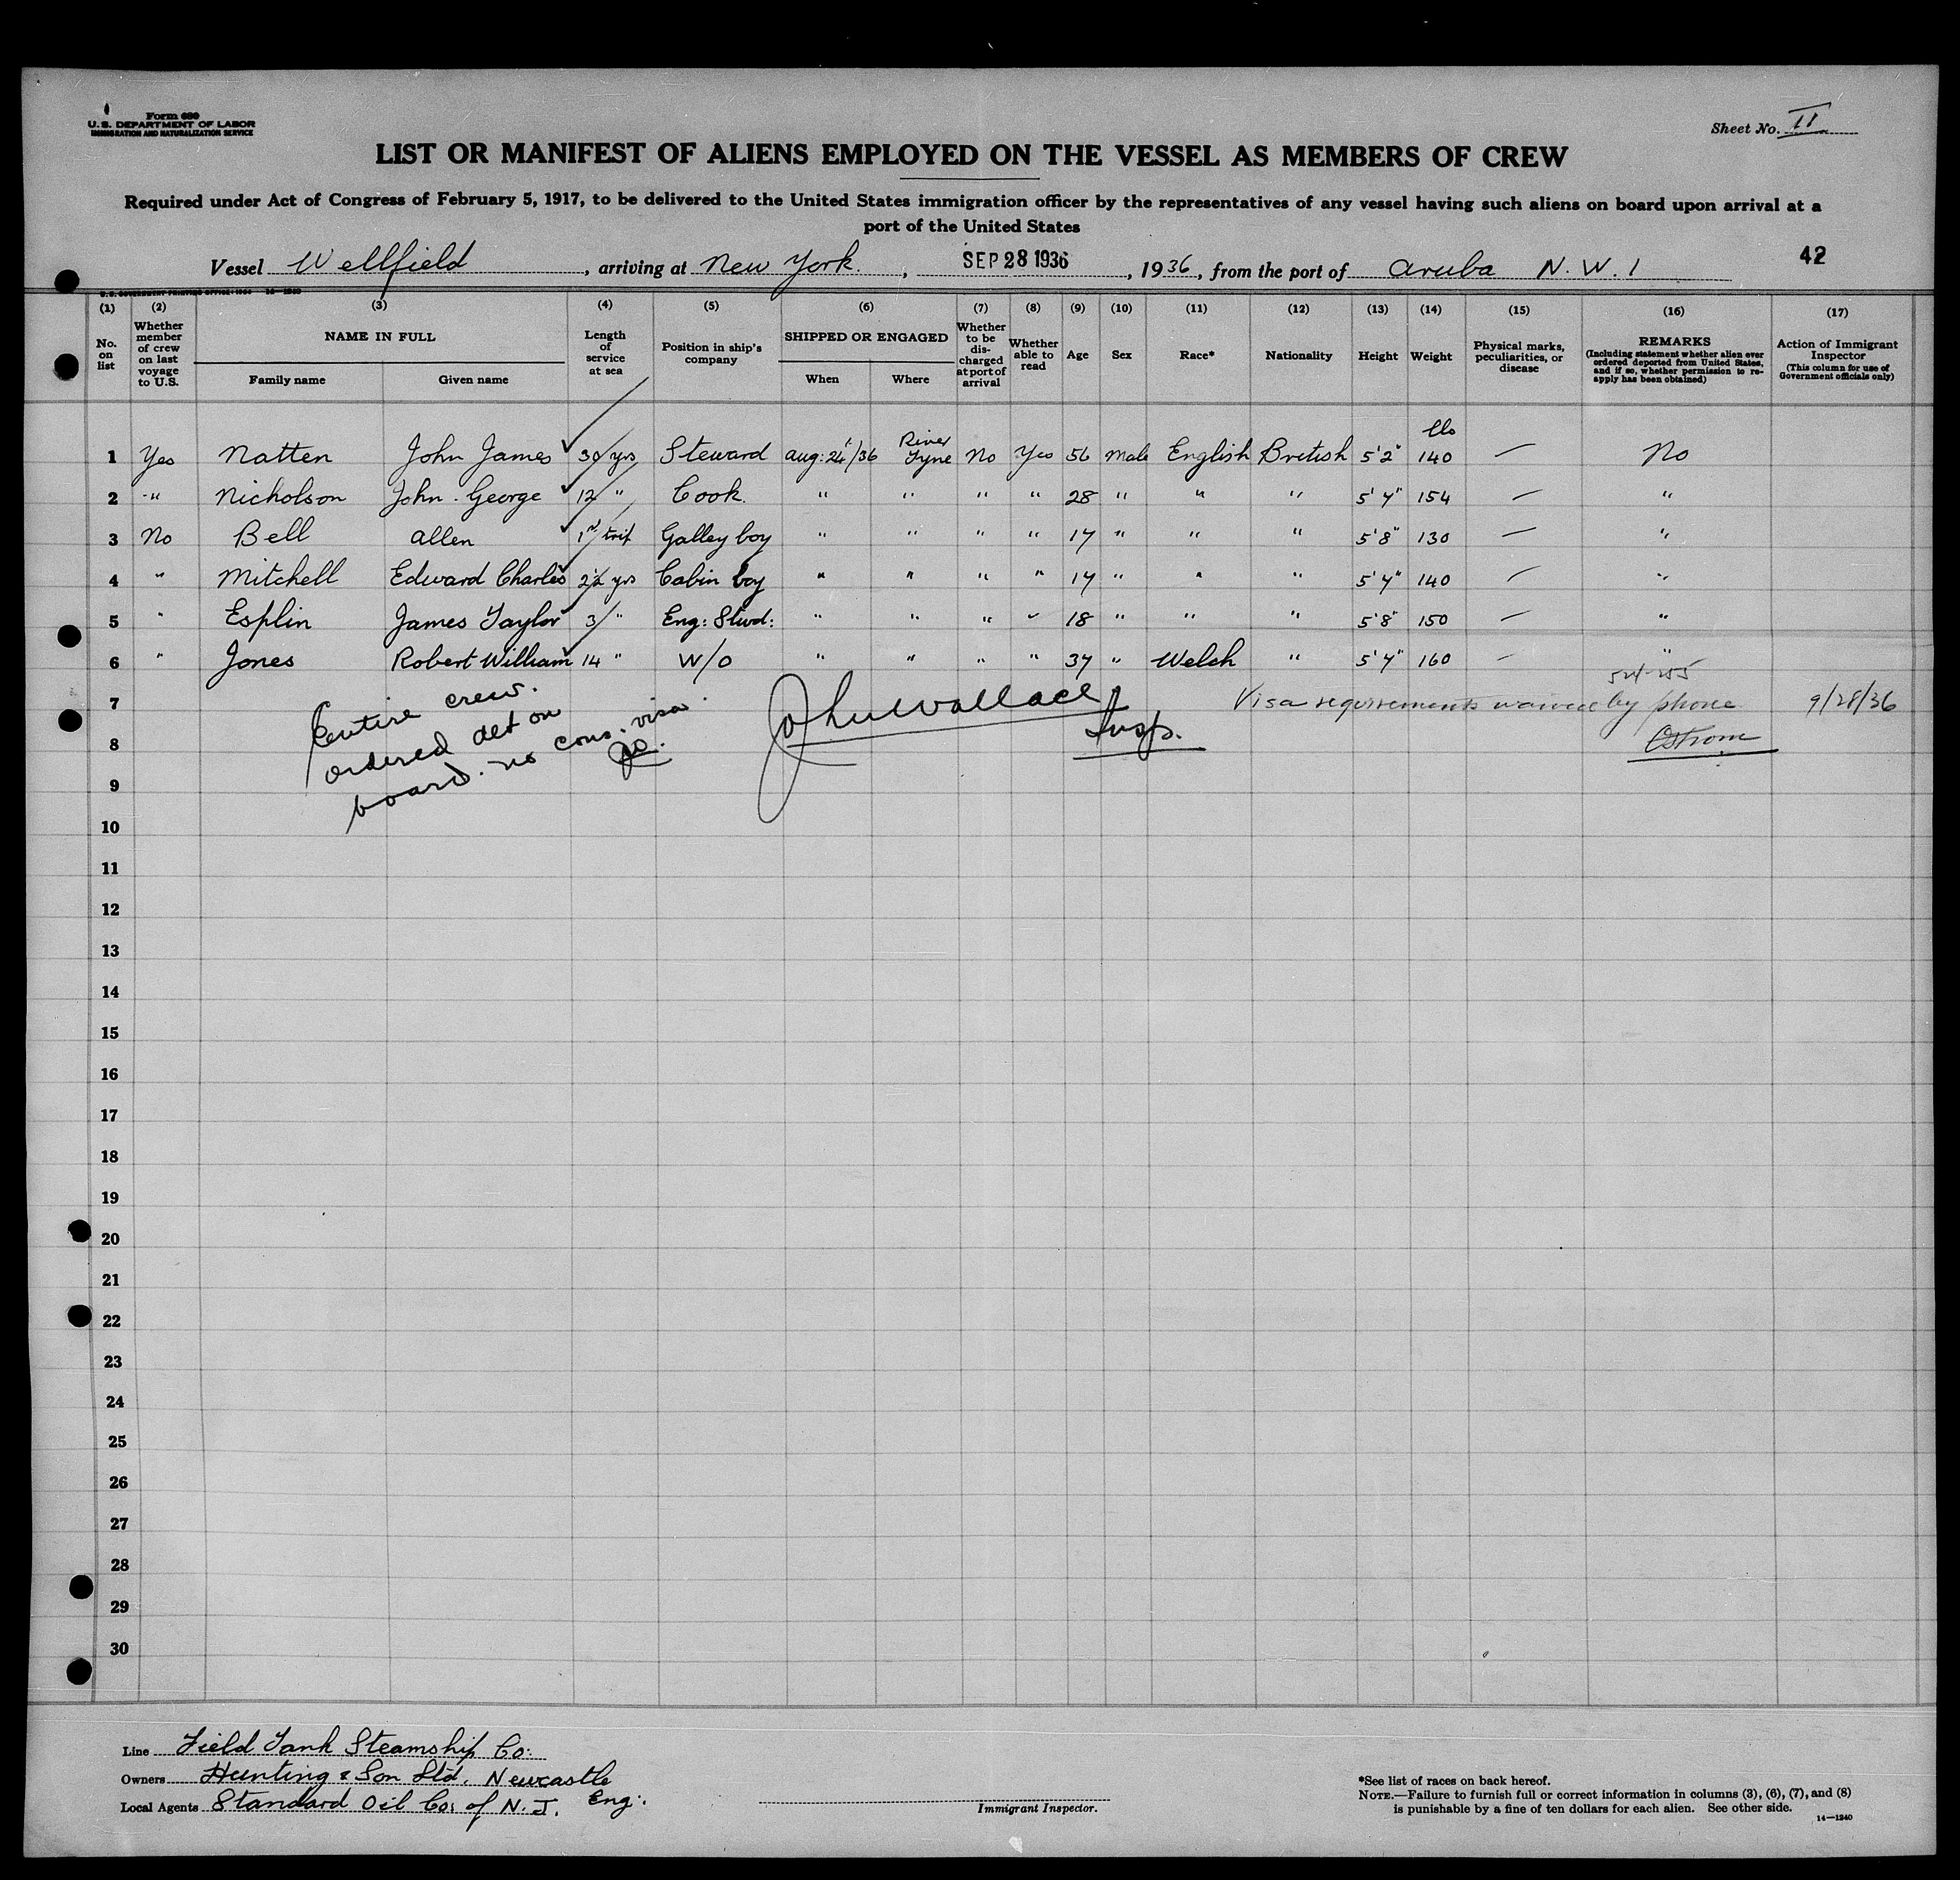 Form 680
U.S. DEPARTMENT OF LABOR
IMMIGRATION AND NATURALIZATION SERVICE
Sheet No. II
LIST OR MANIFEST OF ALIENS EMPLOYED ON THE VESSEL AS MEMBERS OF CREW
Required under Act of Congress of February 5, 1917, to be delivered to the United States immigration officer by the representatives of any vessel having such aliens on board upon arrival at a
port of the United States
Vessel Wellfield, arriving at New York, SEP 28 1936, 1936, from the port of Aruba N. W. I
42
(1) No. on list
(2) Whether member of crew on last voyage to U.S.
(3) NAME IN FULL Family name Given name
(4) Length of service at sea
(5) Position in ship's company
(6) SHIPPED OR ENGAGED When Where
(7) Whether to be discharged at port of arrival
(8) Whether able to read
(9) Age
(10) Sex
(11) Race*
(12) Nationality
(13) Height
(14) Weight
(15) Physical marks, peculiarities, or disease
(16) REMARKS (Including statement whether alien ever ordered deported from United States, and if so, whether permission to re-apply has been obtained)
(17) Action of Immigrant Inspector (This column for use of Government officials only)
lbs
1 Yes Natten John James ✓ 30 yrs Steward Aug: 24/36 River Tyne No Yes 56 Male English British 5'2" 140 — No
2 " Nicholson John. George ✓ 12 " Cook. " " " " 28 " " " 5'7" 154 — "
3 No Bell Allen ✓ 1st trip Galley boy " " " " 17 " " " 5'8" 130 — "
4 " Mitchell Edward Charles ✓ 2½ yrs Cabin boy " " " " 17 " " " 5'7" 140 — "
5 " Esplin James Taylor ✓ 3 " Eng: Stwd: " " " " 18 " " " 5'8" 150 — "
6 " Jones Robert William ✓ 14 " W/O " " " " 37 " Welch " 5'7" 160 — "
7
8
9
10
11
12
13
14
15
16
17
18
19
20
21
22
23
24
25
26
27
28
29
30
Entire crew.
ordered det on
board. no cons. visa.
John Wallace
Insp.
Visa requirements waived by phone 9/28/36
Ostrom
Line Field Tank Steamship Co:
Owners Hunting & Son Ltd. Newcastle
Local Agents Standard Oil Co: of N. J. Eng:.
Immigrant Inspector.
*See list of races on back hereof.
NOTE.—Failure to furnish full or correct information in columns (3), (6), (7), and (8)
is punishable by a fine of ten dollars for each alien. See other side.
14—1240